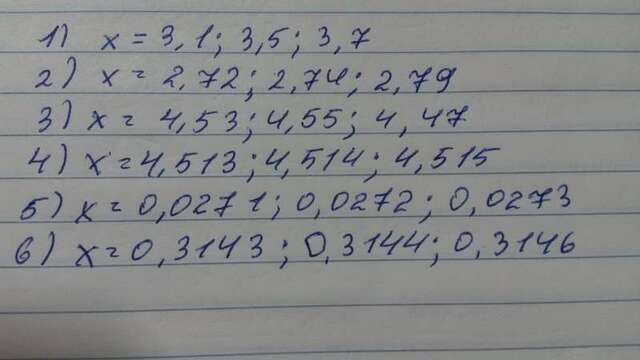 1) x = 3,1; 3,5; 3,7
2) x = 2,72; 2,74; 2,79
3) x = 4,53; 4,55; 4,47
4) x = 4,513; 4,514; 4,515
5) x = 0,0271; 0,0272; 0,0273
6) x = 0,3143; 0,3144; 0,3146